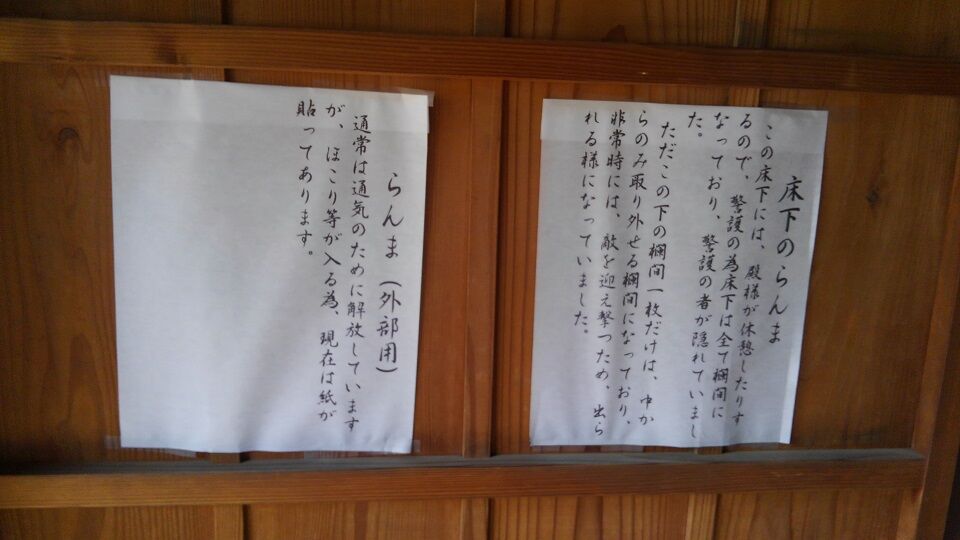 床下のらんま
この床下には、殿様が休憩したりす
るので、警護の為床下は全て欄間に
なっており、警護の者が隠れていまし
た。
ただこの下の欄間一枚だけは、中か
らのみ取り外せる欄間になっており、
非常時には、敵を迎え撃つため、出ら
れる様になっていました。
らんま(外部用)
通常は通気のために解放しています
が、ほこり等が入る為、現在は紙が
貼ってあります。